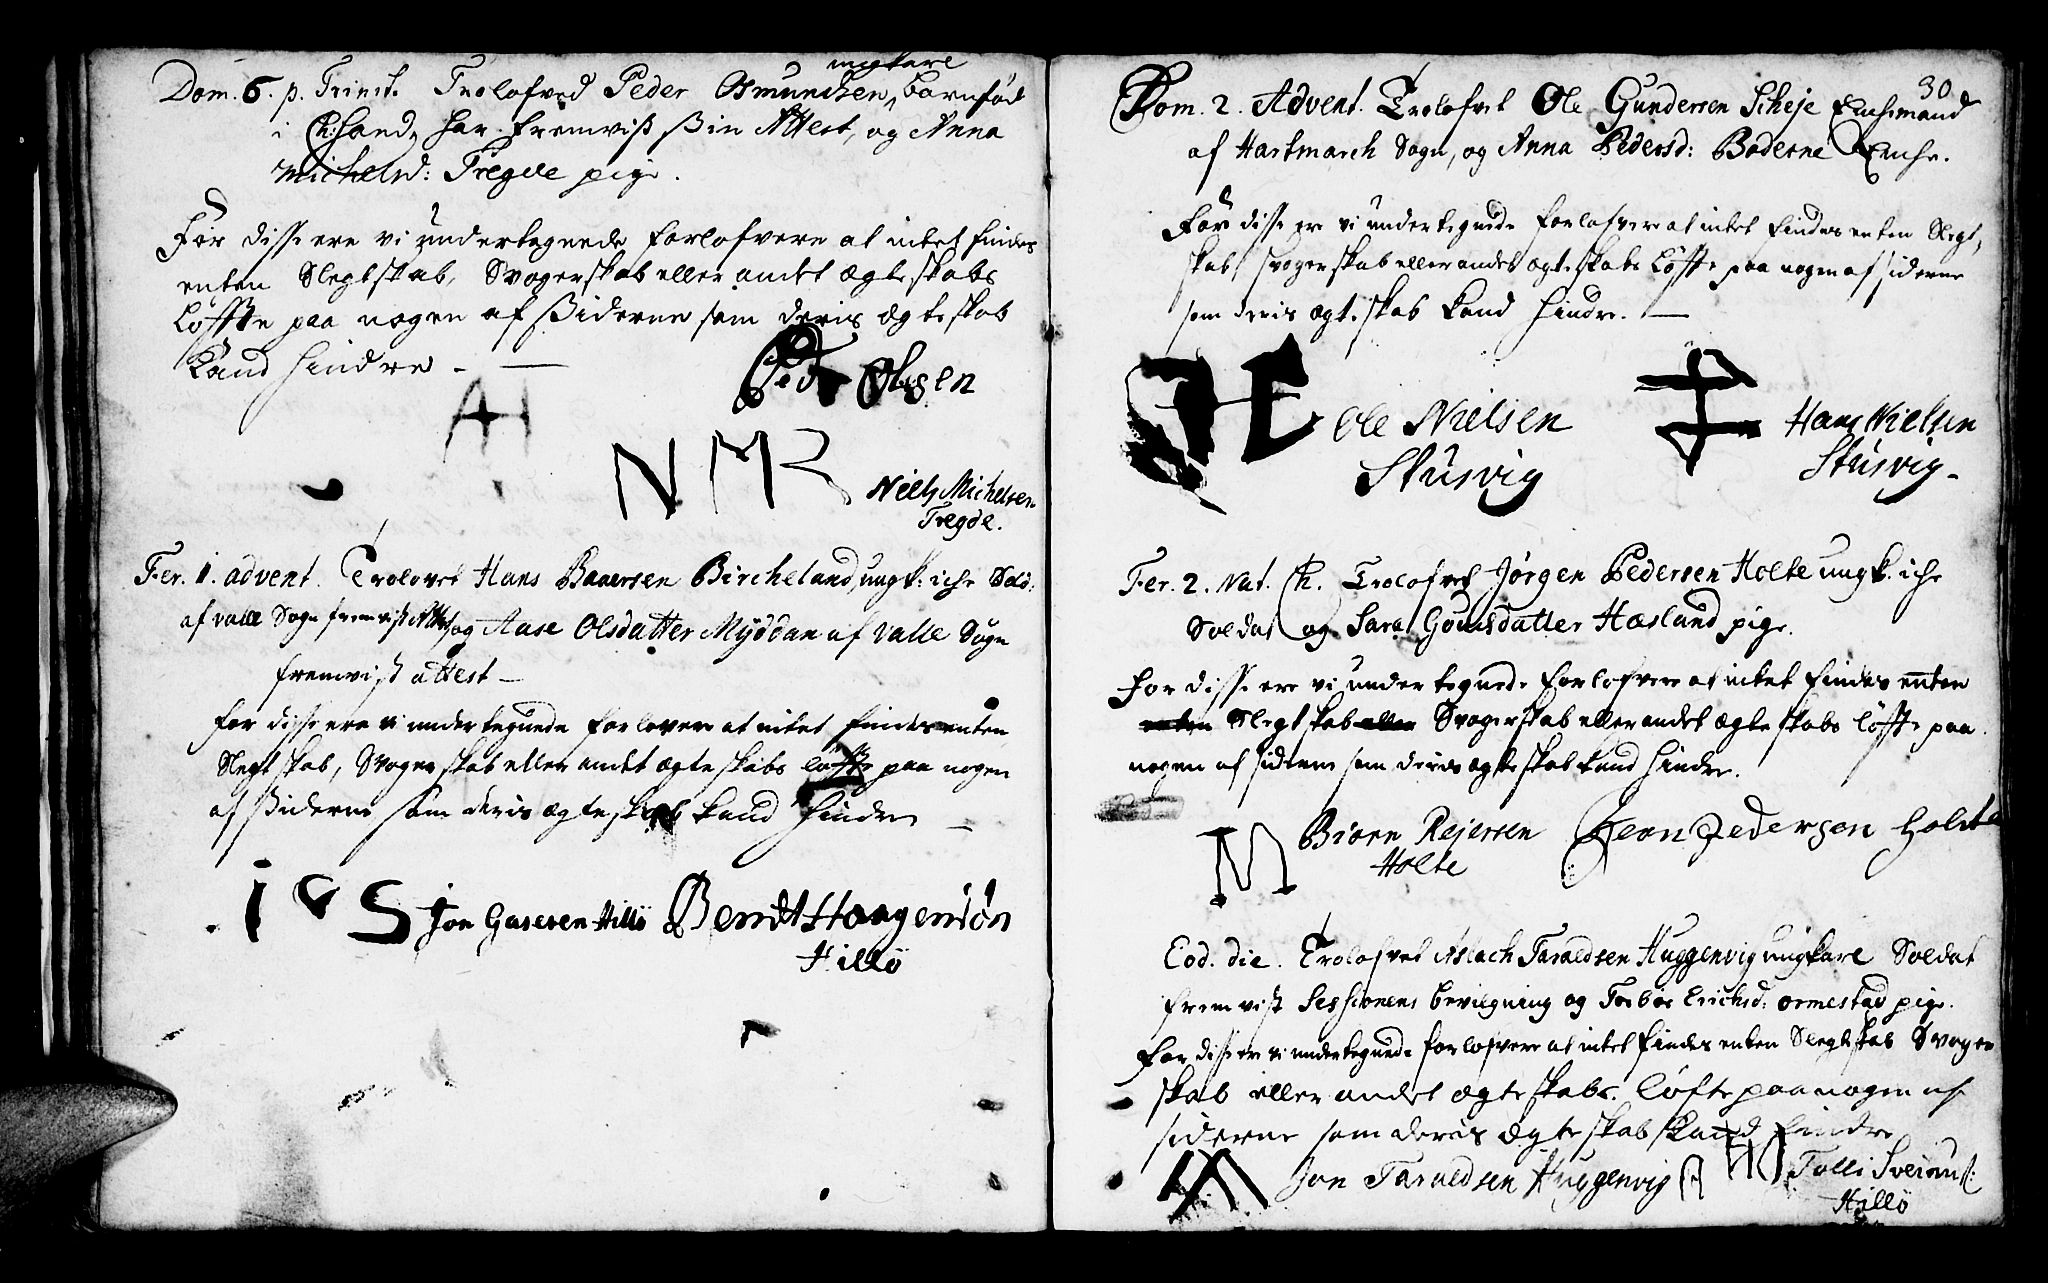 ungkarl
Dom. 6. p. Trinit. Trolofved Peder Osmundsen, barnfød
i Chsand, har fremvist sin Attest, og Anna
Michelsd: Tregde pige.
For disse ere vi undertegnede forlofvere at intet findes
enten Slegtskab, Svogerskab eller andet ægteskabs
løffte paa nogen af siderne som deris ægteskab
kand hindre. —
Ped Olsen
AH
NMR
Niels Michelsen
Tregde.
Fer. 1. advent. Trolovet Hans Baaersen Bircheland, ungk: iche Sold:
af Valle Sogn fremvist Attest og Aase Olsdatter Myddan af Valle Sogn
fremvist attest —
for disse ere vi undertegnede forlovere at intet findes enten
Slegtskab, Svogerskab eller andet ægteskabs løffte paa nogen
af siderne som deris ægteskab kand hindre —
I G S Jon Gasesen Hillö Berndt Haagensön
Hillö
30
Dom. 2. Advent. Trolofvet Ole Gundersen Scheje Enchemand
af Hartmarch Sogn, og Anna Pedersd: Boderne Enche.
For disse ere vi undertegnede forlofvere at intet findes enten Slegt,
skab, svogerskab eller andet ægteskabs løffte paa nogen af siderne
som deris ægteskab kand hindre. —
Ole Nielsen
Stusvig
Hans Nielsen
Stusvig —
Fer. 2. Nat. Ch. Trolofvet Jørgen Pedersen Holte ungk. iche
Soldat og Sara Gounsdatter Hæsland pige.
for disse ere vi undertegnede forlofvere at intet findes enten
enten Slegtskab eller Svogerskab eller andet ægteskabs løffte paa
nogen af siderne som deris ægteskab kand hindre.
M Biørn Rejersen
Holte
Jeon Pedersen Holte
Eod. die. Trolofvet Aslach Taraldsen Huggenvig ungkarl Soldat
fremvist Sessionens bevilgning og Torbør Erichsd: Ormestad pige.
for disse ere vi undertegnede forlofvere at intet findes enten Slegtskab Svoger
skab eller andet ægteskabs løfte paa nogen af
siderne som deris ægteskab kand hindre
Jon Taraldsen Huggenvig
Tolli Sveinus:
Hillö